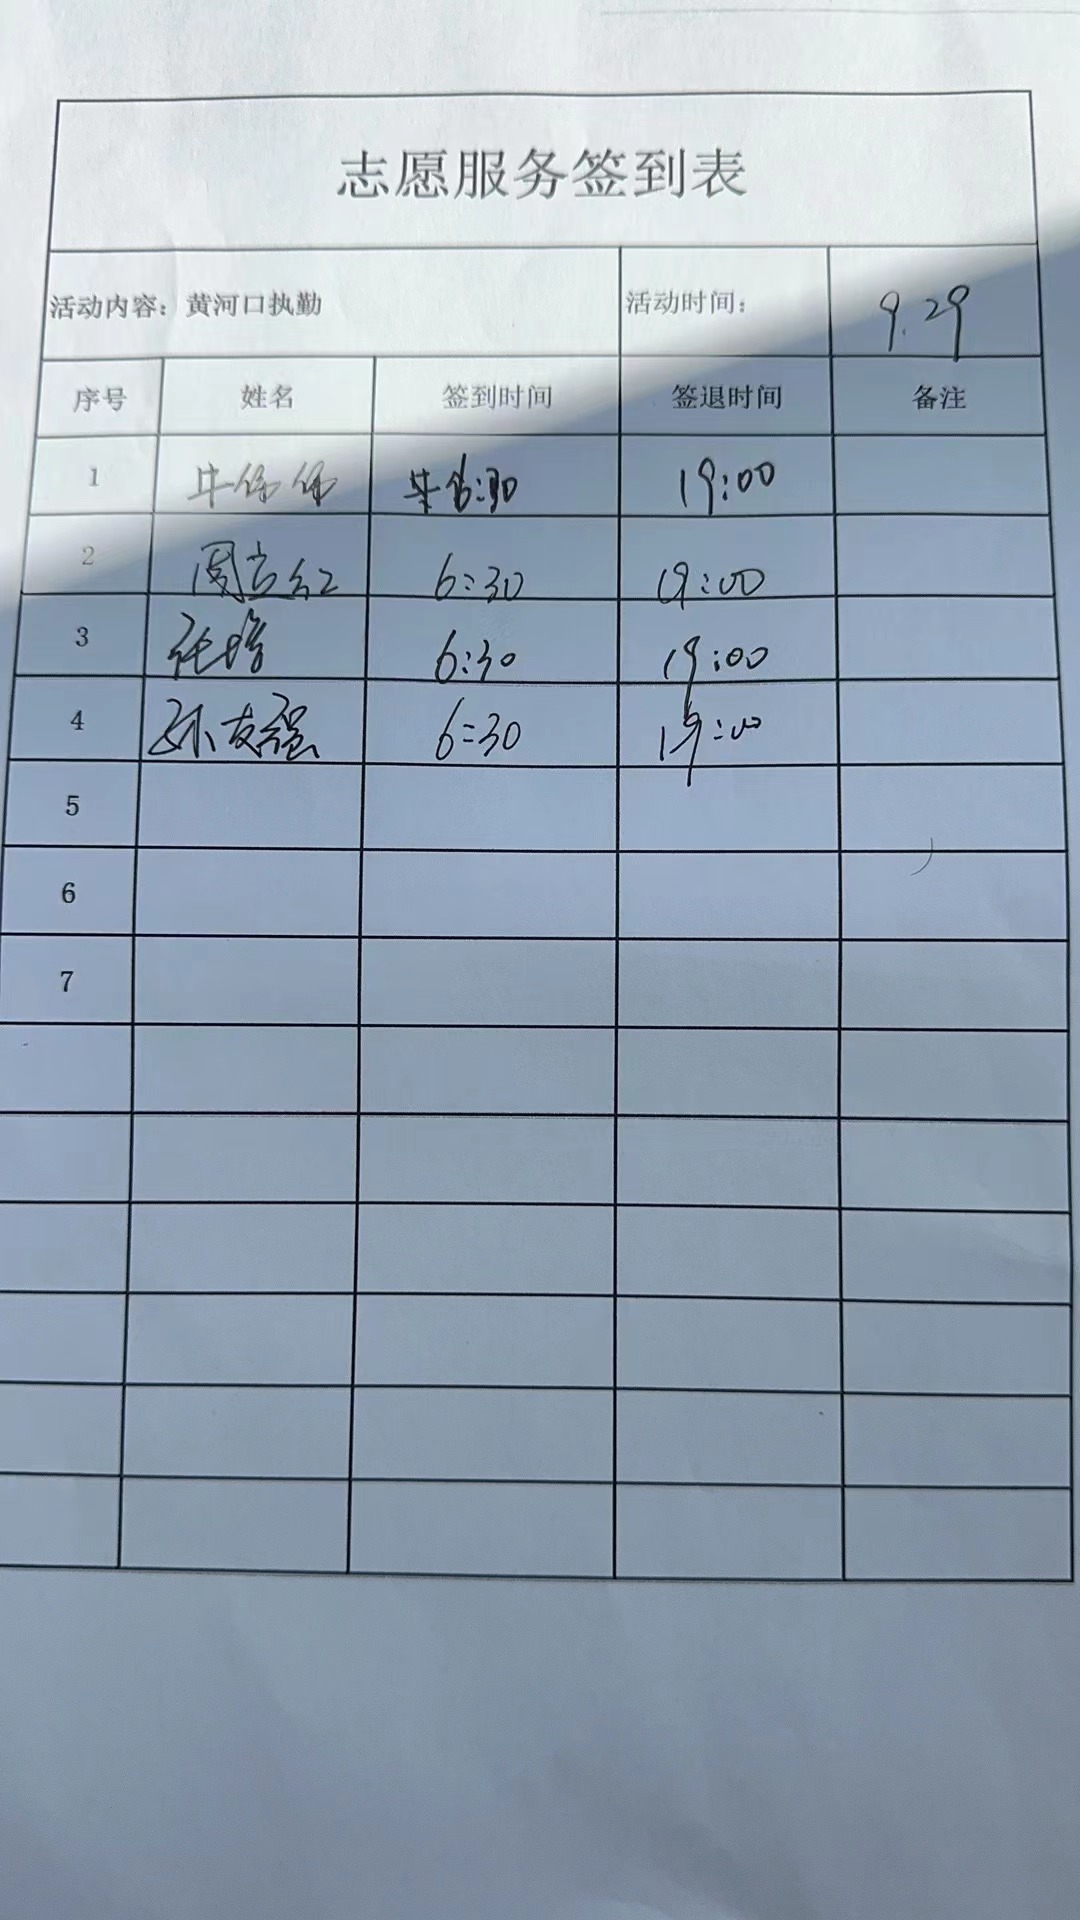 志愿服务签到表
活动内容：黄河口执勤 活动时间： 9.29
序号 姓名 签到时间 签退时间 备注
1 牛保保 6:30 19:00
2 周立红 6:30 19:00
3 张增 6:30 19:00
4 孙友强 6:30 19:00
5
6
7